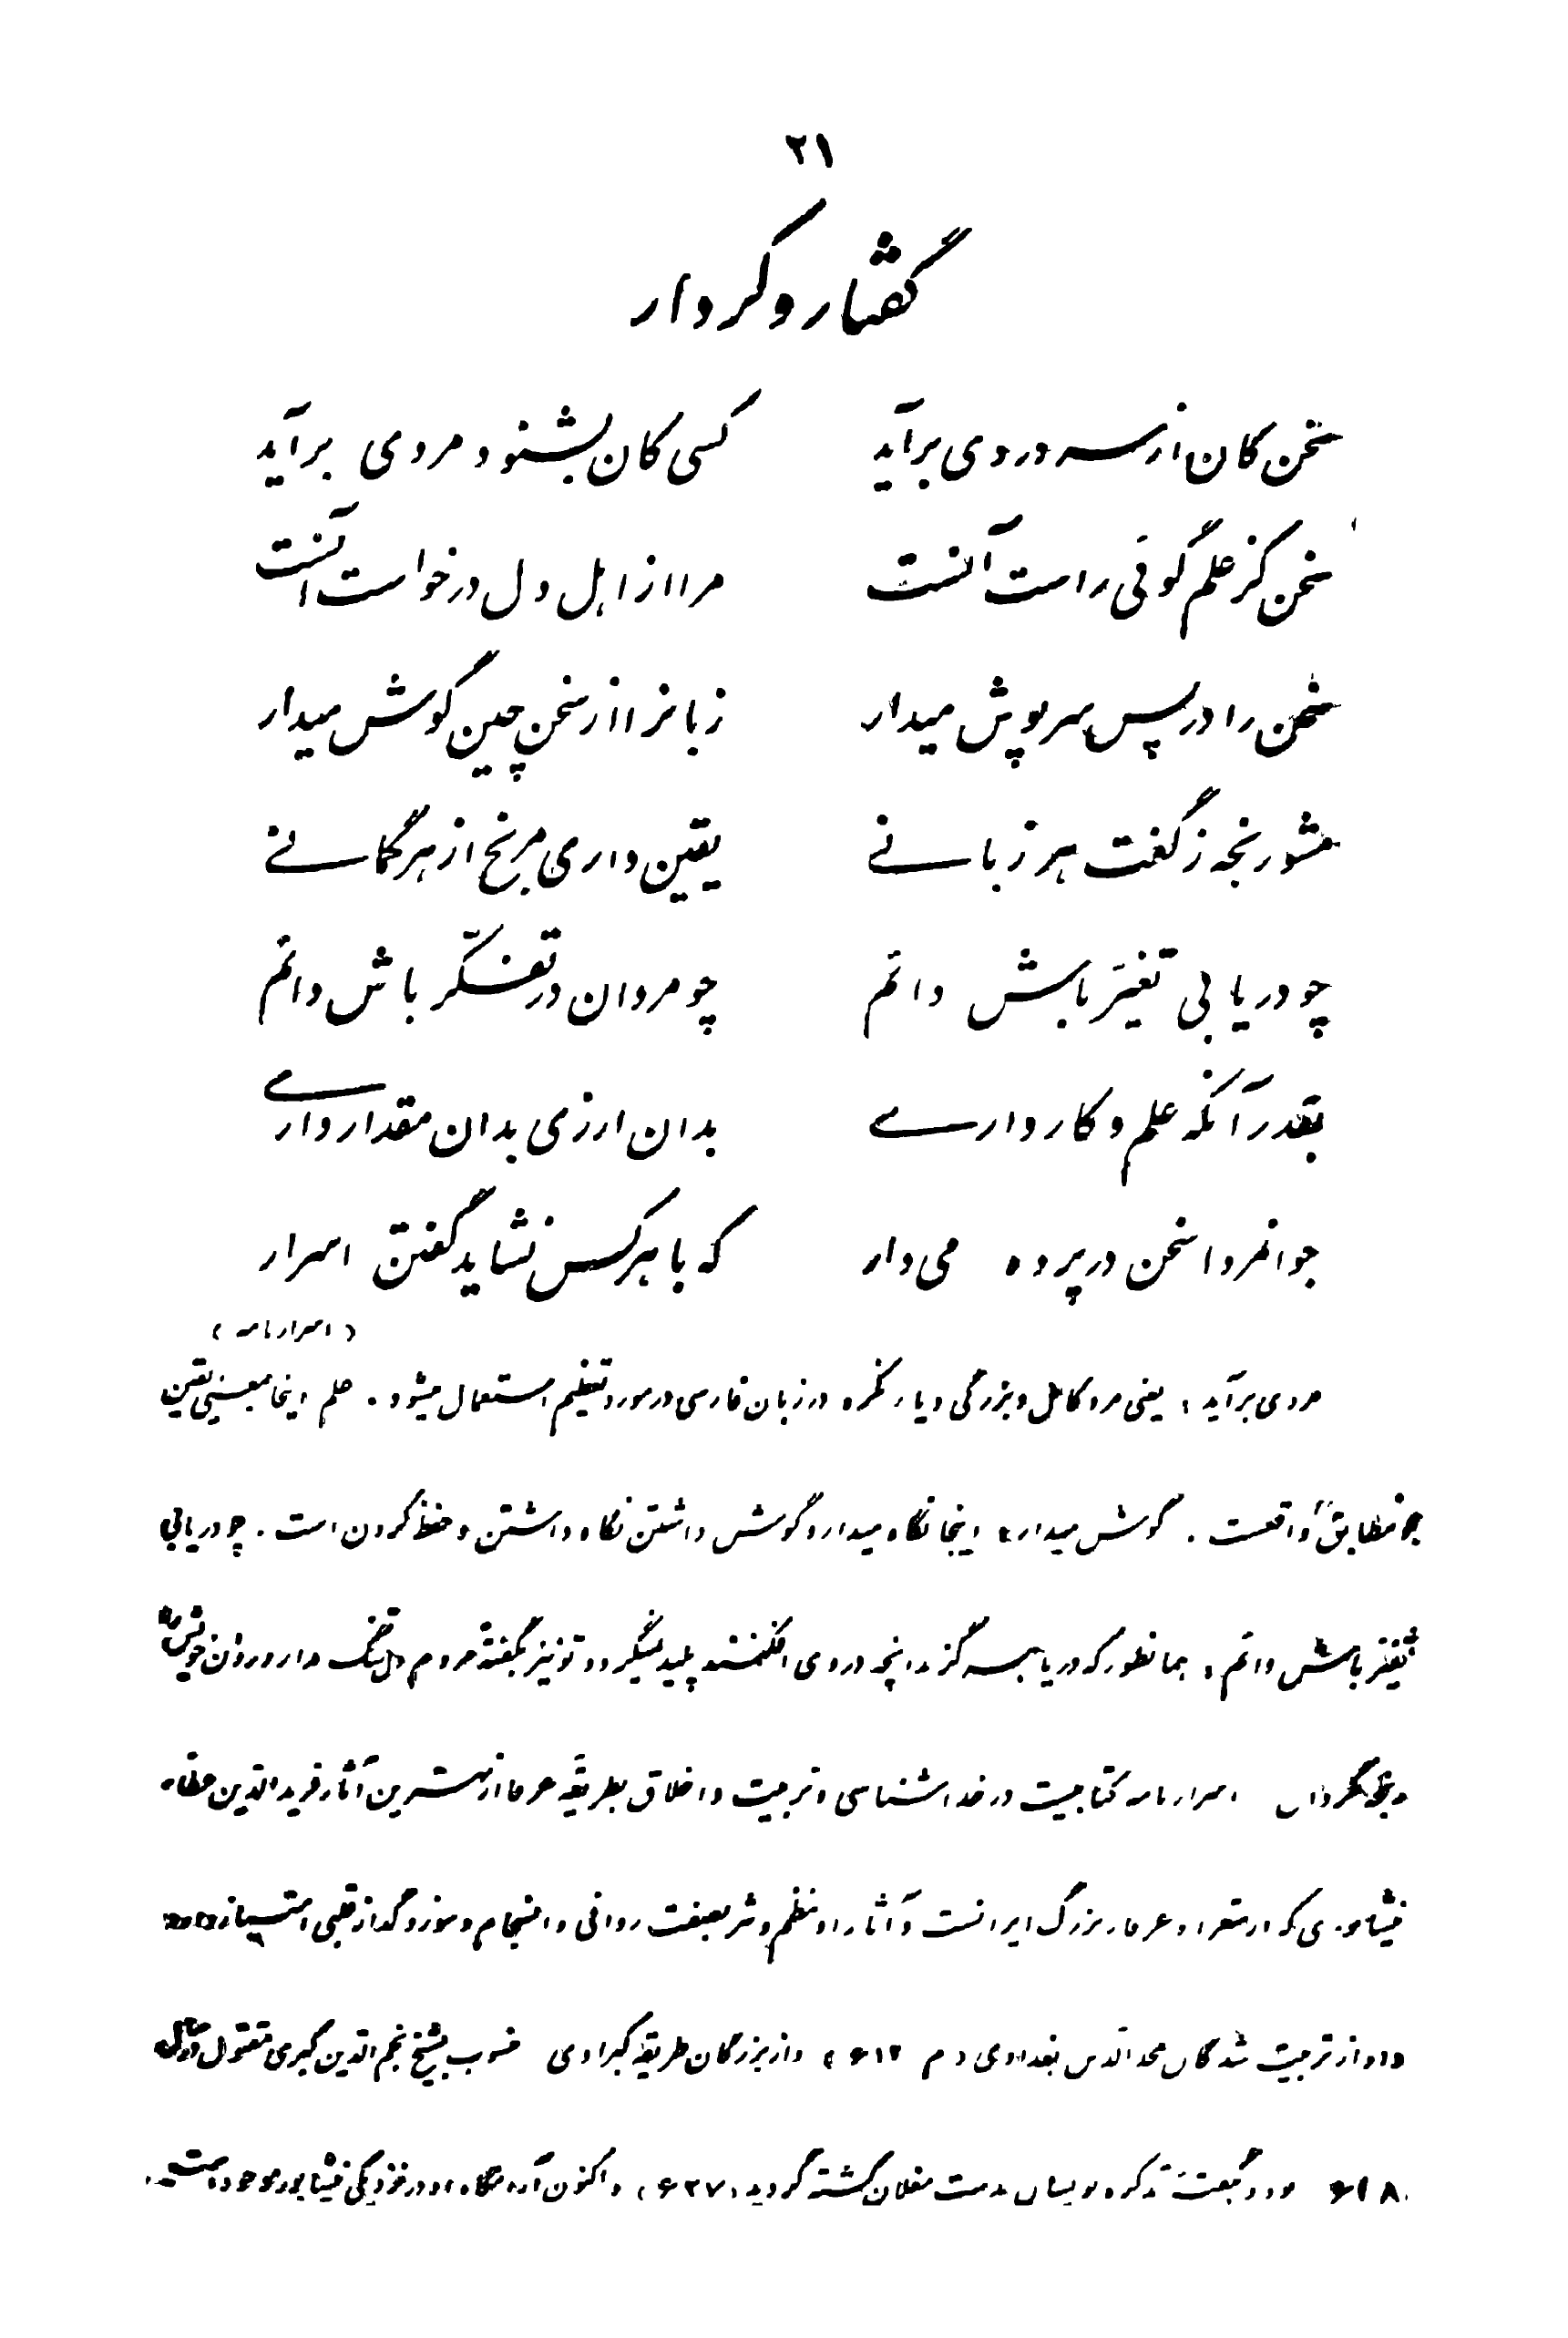 ۲۱
گفتار و کردار
سخن کان از سر دردی برآید کسی کان بشنود مردی برآید
سخن کز علم گوئی راست آنست مرا از اهل دل درخواست آنست
سخن را در پس سرپوش میدار زبانرا از سخن چین گوش میدار
مشو رنجه ز گفت هر زبانے یقین داری مرنج از هر گمانے
چو دریا بی تغیّر باش دائم چو مردان در تفکّر باش دائم
بقدر آنکه علم و کار دارے بدان ارزی بدان مقدار دارے
جوانمردا سخن در پرده می دار که با هر کس نشاید گفتن اسرار
(اسرارنامه)
مردی برآید، یعنی مرد کامل و بزرگی و یاء نکره در زبان فارسی در مورد تعظیم استعمال میشود. علم اینجا بمعنیی یقین
مطابق واقعست. گوش میدار، اینجا نگاه میدار و گوش داشتن نگاه داشتن و حفظ کردن است. چو دریا بی
تغیّر باش دائم، همانطور که دریا بهر گز بدانچه در وی افکنند پلید نمیگردد تو نیز بگفتهٔ مردم دل تنگ مدار و روان خویش
اسرارنامه کتابیست در خداشناسی و تربیت و اخلاق بطریقهٔ عرفا از بهترین آثار فریدالدین عطار
نیشابوری که از شعرا و عرفاء بزرگ ایرانست و آثار او از نظم و نثر بصفت روانی و انسجام و سوز و گداز قلبی امتیاز دارد
و او از تربیت شدگان مجدالدین بغدادی (م ۶۱۶) و از بزرگان طریقهٔ کبراوی منسوب بشیخ نجم الدین کبری مقتول
۶۱۸ بود و بگفتهٔ تذکره نویسان بدست مغلان کشته گردید (۶۲۷) و اکنون آرامگاه او در نزدیکی نیشابور موجود است.